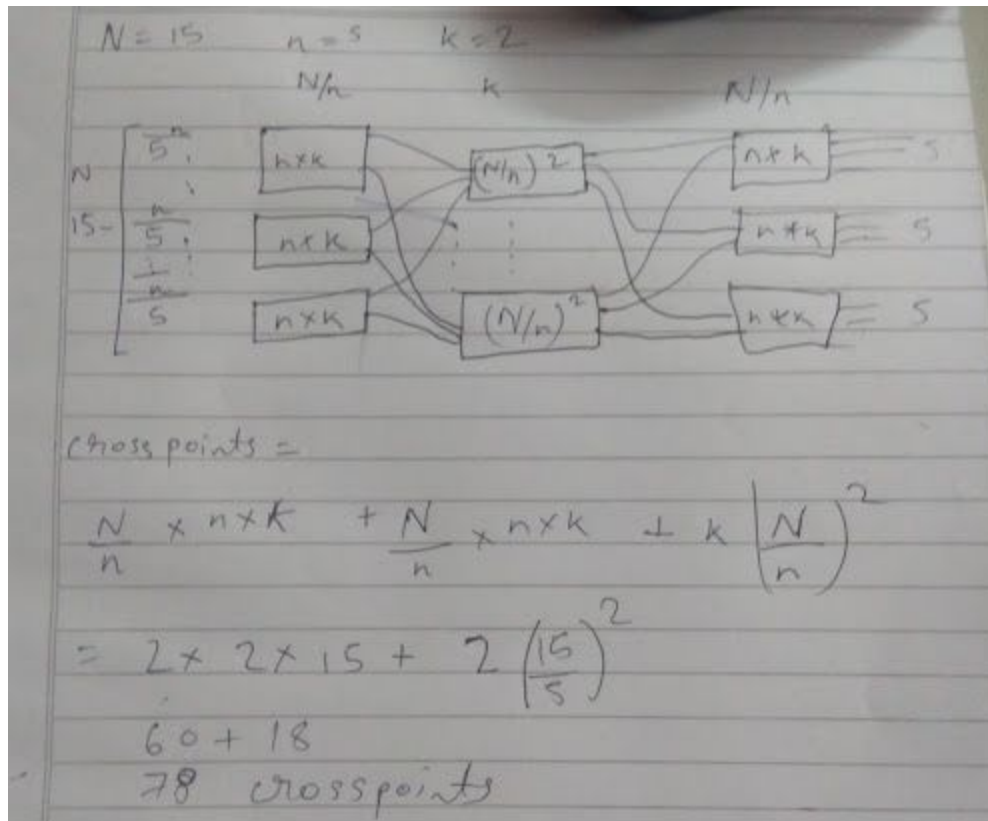 N = 15 n = 5 k = 2
N/n k N/n
N
15-
n
5
n×k
(N/n)²
n×k
5
n
5
n×k
n×k
5
n
5
n×k
(N/n)²
n×k
5
cross points =
N/n × n×k + N/n × n×k + k (N/n)²
= 2× 2× 15 + 2 (15/5)²
60 + 18
78 crosspoints